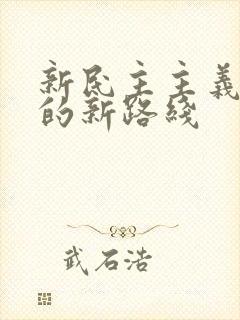 新民主主義
的新路綫
武石浩